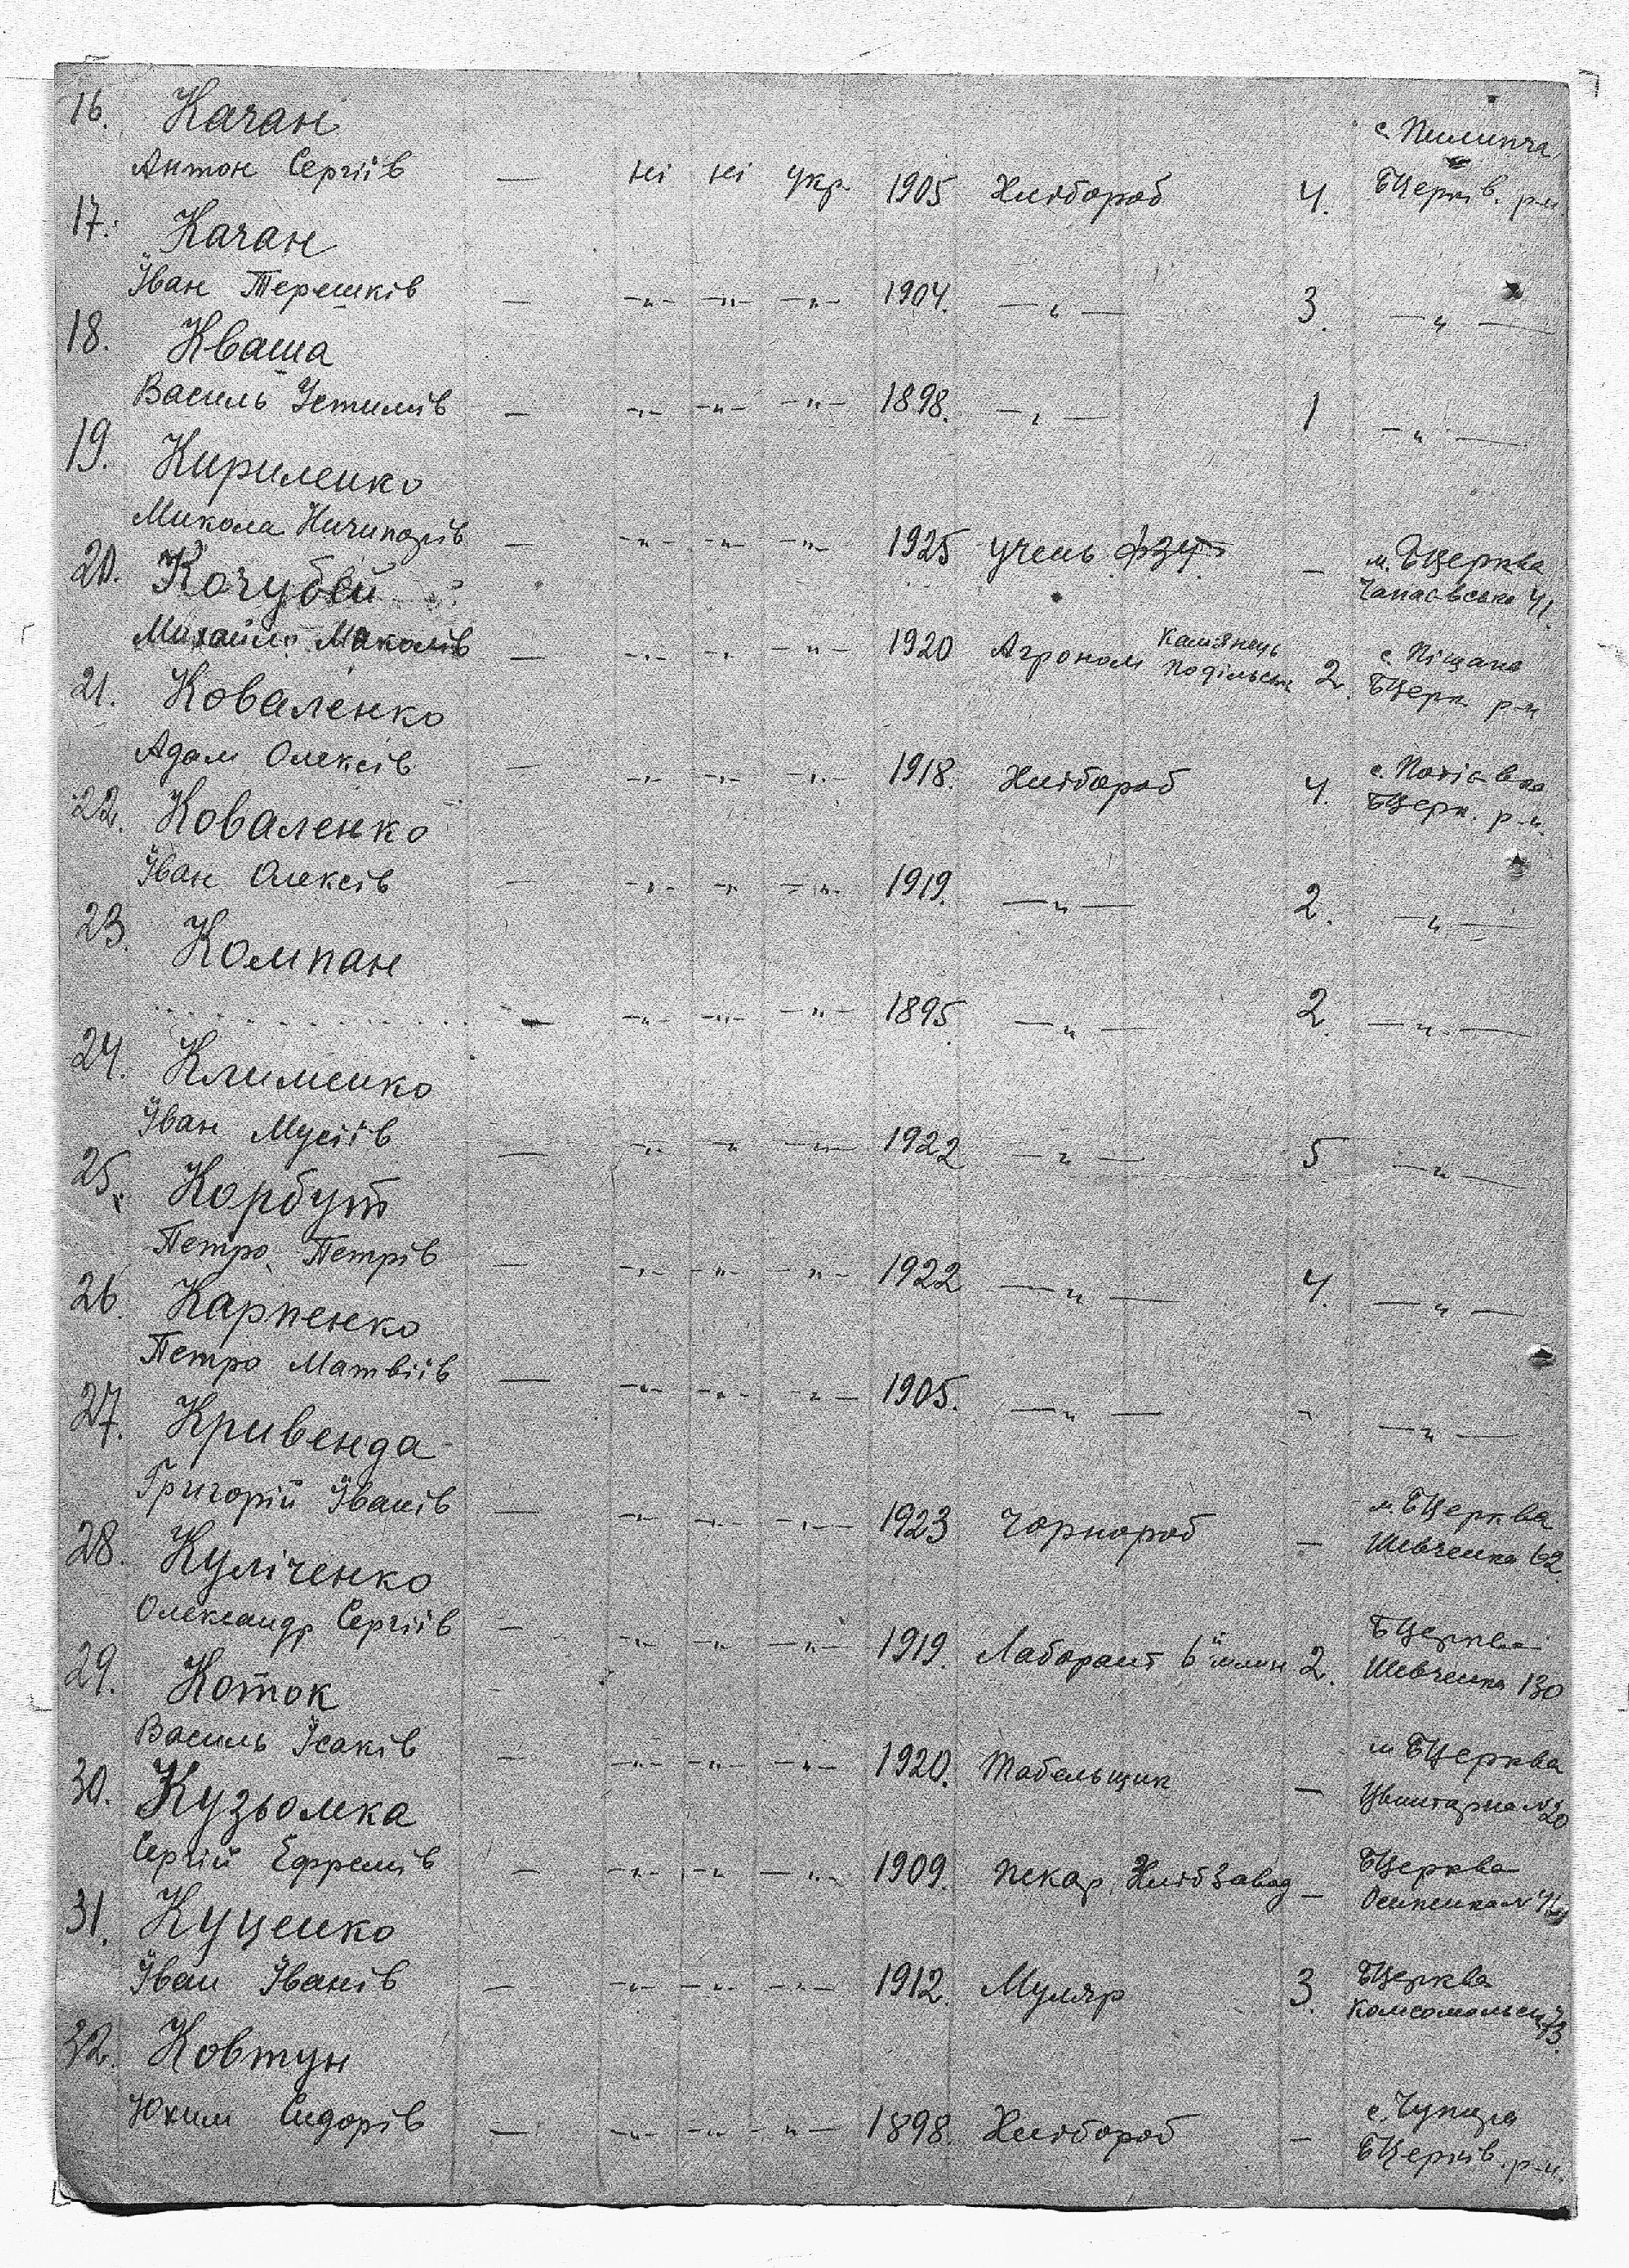 16. Качан с. Пилипча
Антон Сергіїв — ні ні укр. 1905 Хлібороб 4. БЦерків. р-н.
17. Качан
Іван Терешків — -"- -"- -"- 1904. —"— 3. —"—
18. Кваша
Василь Устимів — -"- -"- -"- 1898. —"— 1 —"—
19. Кириленко
Микола Ничипорів — -"- -"- -"- 1925 учень ФЗУ — м. БЦерква
Чапаєвська 41.
20. Кочубей
Михайло Миколів — -"- -"- -"- 1920 Агроном Камянець Подільськ 2. с. Піщана
БЦерк. р-н
21. Коваленко
Адам Олексіїв — -"- -"- -"- 1918. Хлібороб 4. с.
БЦерк. р-н.
22. Коваленко
Іван Олексів — -"- -"- -"- 1919. —"— 2. —"—
23. Компан
— -"- -"- -"- 1895. —"— 2. —"—
24. Клименко
Іван Мусіїв — -"- -"- -"- 1922 —"— 5 —"—
25. Корбут
Петро Петрів — -"- -"- -"- 1922 —"— 4. —"—
26 Карпенко
Петро Матвіїв — -"- -"- -"- 1905. —"— - —"—
27. Кривенда
Григорій Іванів — -"- -"- -"- 1923 Чорнороб — м. БЦерква
Шевченка 62.
28. Куліченко
Олександр Сергіїв — -"- -"- -"- 1919. Лаборант 2. БЦерква
Шевченка 130
29. Коток
Василь Ісаків — -"- -"- -"- 1920. Табельщик — м БЦерква
Цвинтарна № 20
30. Кузьомка
Сергій Ефремів — -"- -"- -"- 1909. пекар, Хлібзавод — БЦерква
31. Куценко
Іван Іванів — -"- -"- -"- 1912. Муляр 3. БЦерква
32. Ковтун
Юхим Сидорів — -"- -"- -"- 1898. Хлібороб — с. Чупира
БЦерків. р-н.